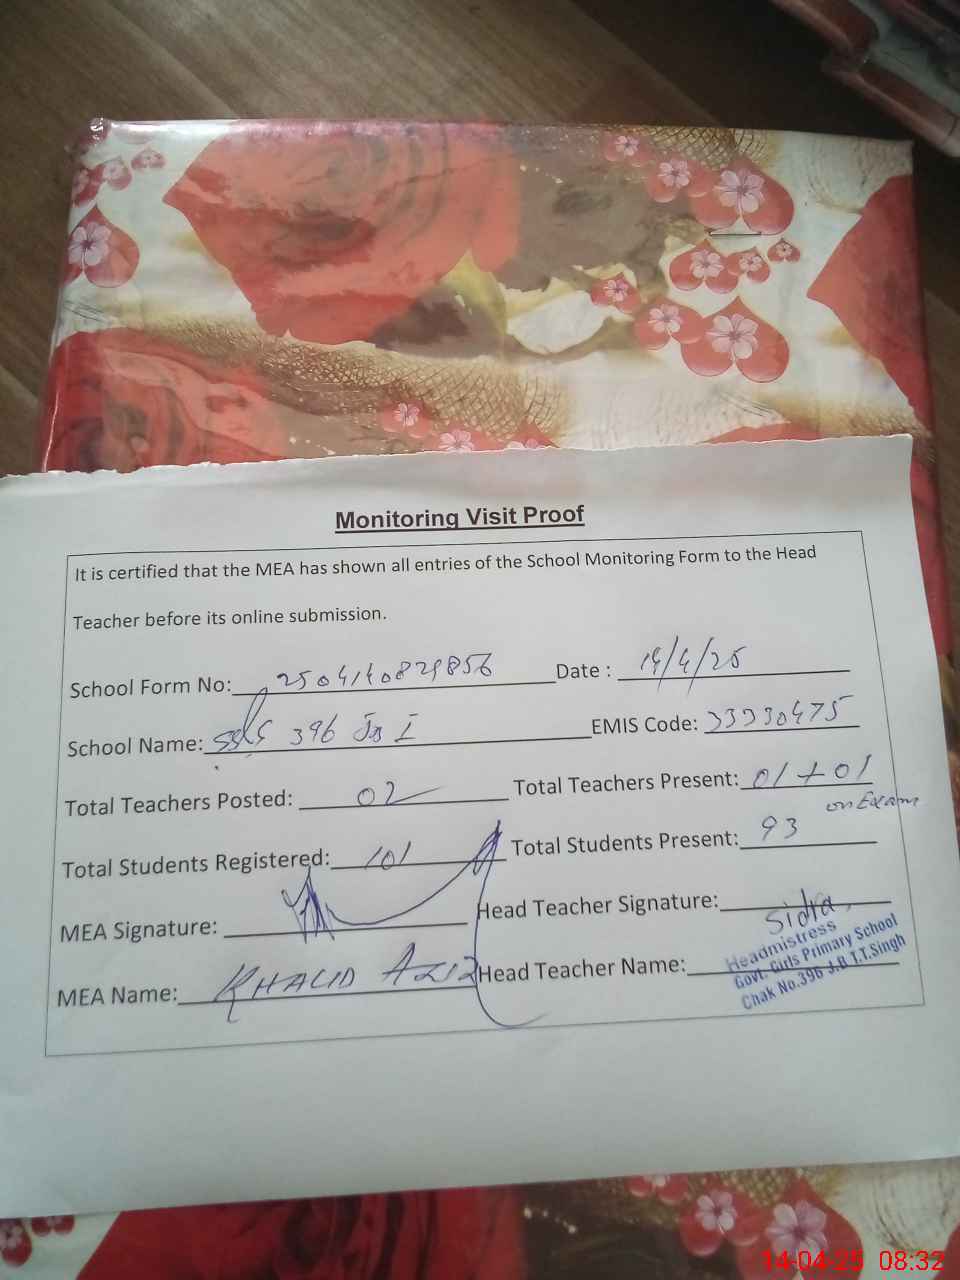 Monitoring Visit Proof
It is certified that the MEA has shown all entries of the School Monitoring Form to the Head
Teacher before its online submission.
School Form No: 2504140829856 Date : 14/4/25
School Name: 396 JB I EMIS Code: 33330475
Total Teachers Posted: 02 Total Teachers Present: 01+01
on Exam
Total Students Registered: 101 Total Students Present: 93
MEA Signature: Head Teacher Signature: Sidra
MEA Name: KHALID AZIZ Head Teacher Name:
Headmistress
Govt. Girls Primary School
Chak No.396 J.B T.T.Singh
14-04-25 08:32